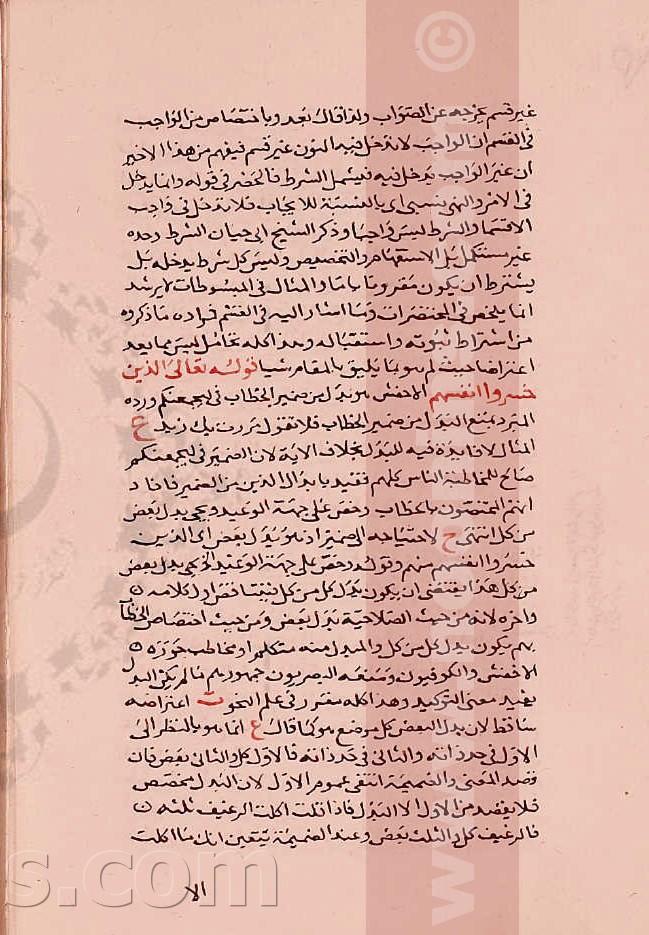 غير قسم يخرجه عن الصواب ولذا قال بعد وباختصاص من الواجب
في القسم ان الواجب لا تدخل فيه النون غير قسم فيفهم من هذا الاخير
ان غير الواجب يدخل فيه فيشمل الشرط فالحصر في قوله وانما يدخل
في الامر والنهي نسبي اي بالنسبة للايجاب فلا تدخل في واجب
الاقسما والشرط ليس واجبا وذكر الشيخ ابي حيان الشرط وحده
غير مستكمل بل الاستفهام والتخصيص وليس كل شرط يدخله بل
يشترط ان يكون مقرونا باما والمثال في المبسوطات لا يرشد
انما يلخص في المختصرات وما اشار اليه في القسم فراده ما ذكروه
من اشتراط ثبوته واستقباله وهذا كله تحامل ليس مما يعد
اعتراضا حيث لم يليق بالمقام شيا قوله تعالى الذين
خسروا انفسهم الاخفش هو بدل من ضمير الخطاب في ليجمعنكم ورده
المبرد بمنع البدل من ضمير الخطاب فلا تقول مررت بك زيد ع
المثال لا فايدة فيه للبدل بخلاف الاية لان الضمير في ليجمعنكم
صالح للمخاطبة الناس كلهم فيفيد بابدال الذين من الضمير فافاد
انهم المختصون بالخطاب وخص على جهة الوعيد ويجي بدل بعض
من كل انتهى ح لاحتياجه الى ضمير اذ هو بدل بعض اي الذين
خسروا انفسهم منهم وقوله وخص على جهة الوعيد الخ يجي بدل بعض
من كل هذا يقتضي ان يكون بدل كل من كل فتناقض اول كلامه
واخره لانه من حيث الصلاحية بدل بعض ومن حيث اختصاص الخطاب
بهم يكون بدل كل من كل والمبدل منه متكلم او مخاطب جوزه
الاخفش والكوفيون ومنعه البصريون جمهورهم ما لم يكن البدل
يفيد معنى التوكيد وهذا كله مقرر في علم النحو ت اعتراضه
ساقط لان بدل البعض كل موضع هو كما قال ع انما هو بالنظر الى
الاول في حد ذاته والثاني في حد ذاته فالاول كل والثاني بعض فان
قصد المعنى والضميمة انتفى عموم الاول لان البدل مخصص
فلا يقصد من الاول الا البدل فاذا قلت اكلت الرغيف ثلثه
فالرغيف كل والثلث بعض وعند الضميمة يتعين انك ما اكلت
الا
s.com